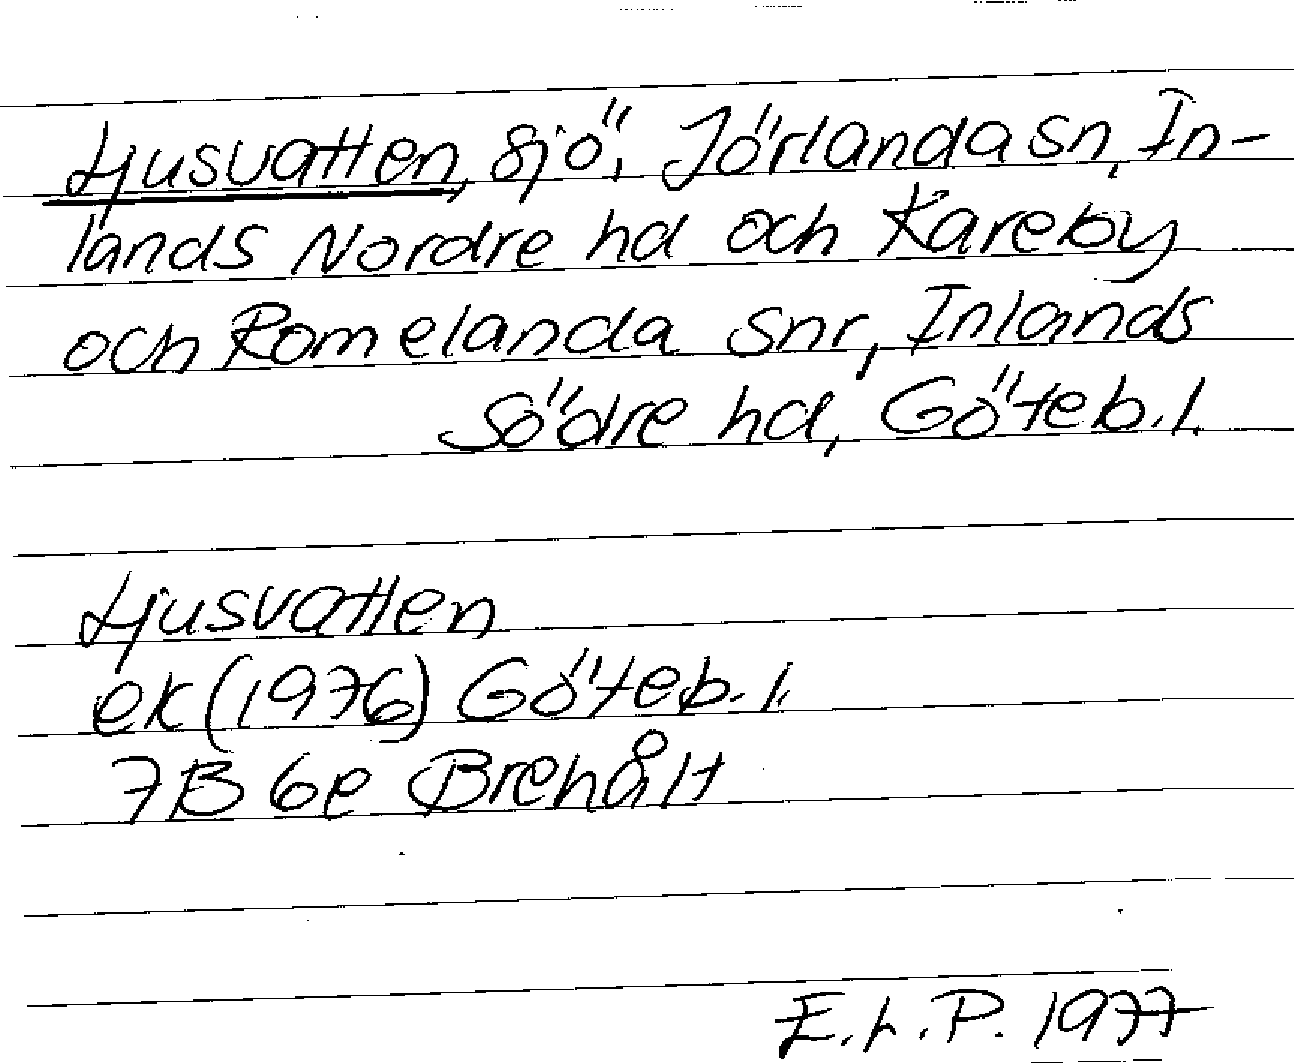 Ljusvatten, sjö, Jörlanda sn, In-
lands Nordre hd och Kareby
och Romelanda snr, Inlands
Södre hd, Göteb.l.
Ljusvatten
ek (1976) Göteb.l.
7B 6e Brehålt
E.L.P. 1977